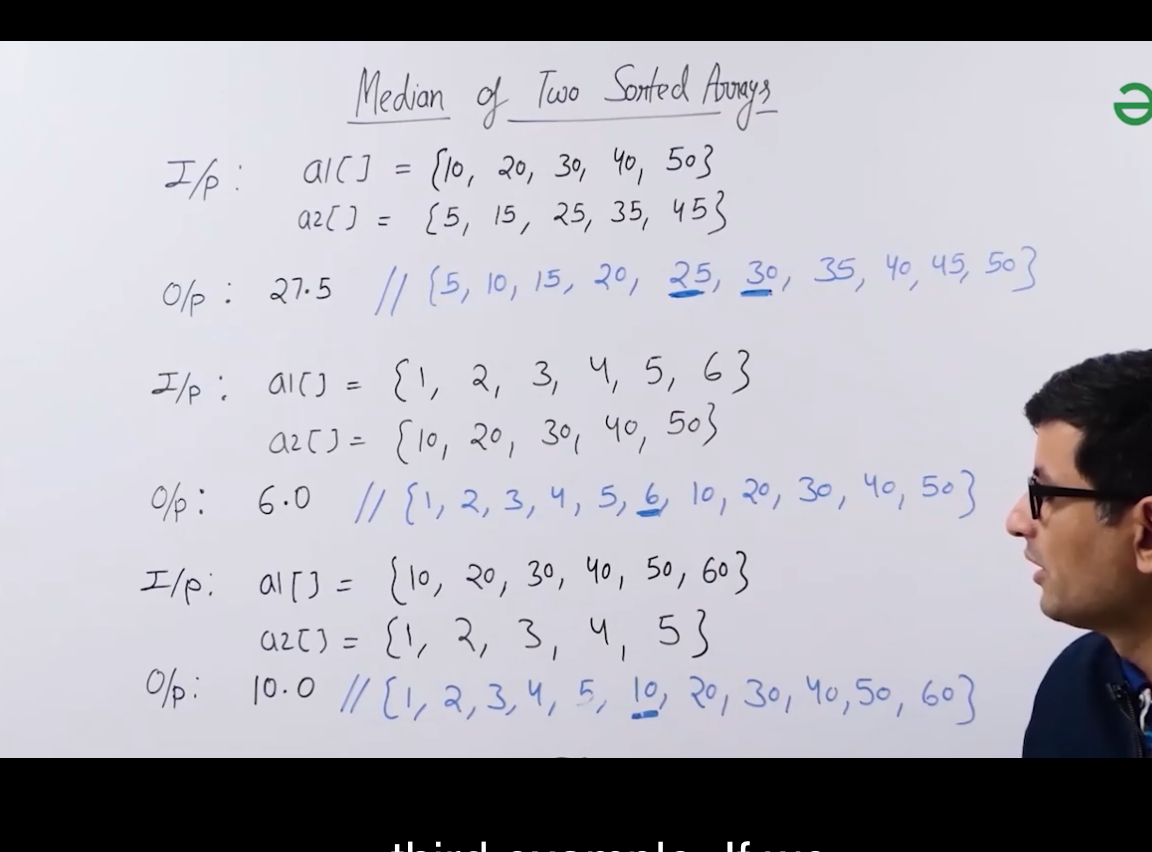 Median of Two Sorted Arrays
I/p : a1[] = {10, 20, 30, 40, 50}
a2[] = {5, 15, 25, 35, 45}
O/p : 27.5 // {5, 10, 15, 20, 25, 30, 35, 40, 45, 50}
I/p : a1[] = {1, 2, 3, 4, 5, 6}
a2[] = {10, 20, 30, 40, 50}
O/p : 6.0 // {1, 2, 3, 4, 5, 6, 10, 20, 30, 40, 50}
I/p : a1[] = {10, 20, 30, 40, 50, 60}
a2[] = {1, 2, 3, 4, 5}
O/p : 10.0 // {1, 2, 3, 4, 5, 10, 20, 30, 40, 50, 60}
third example. If we